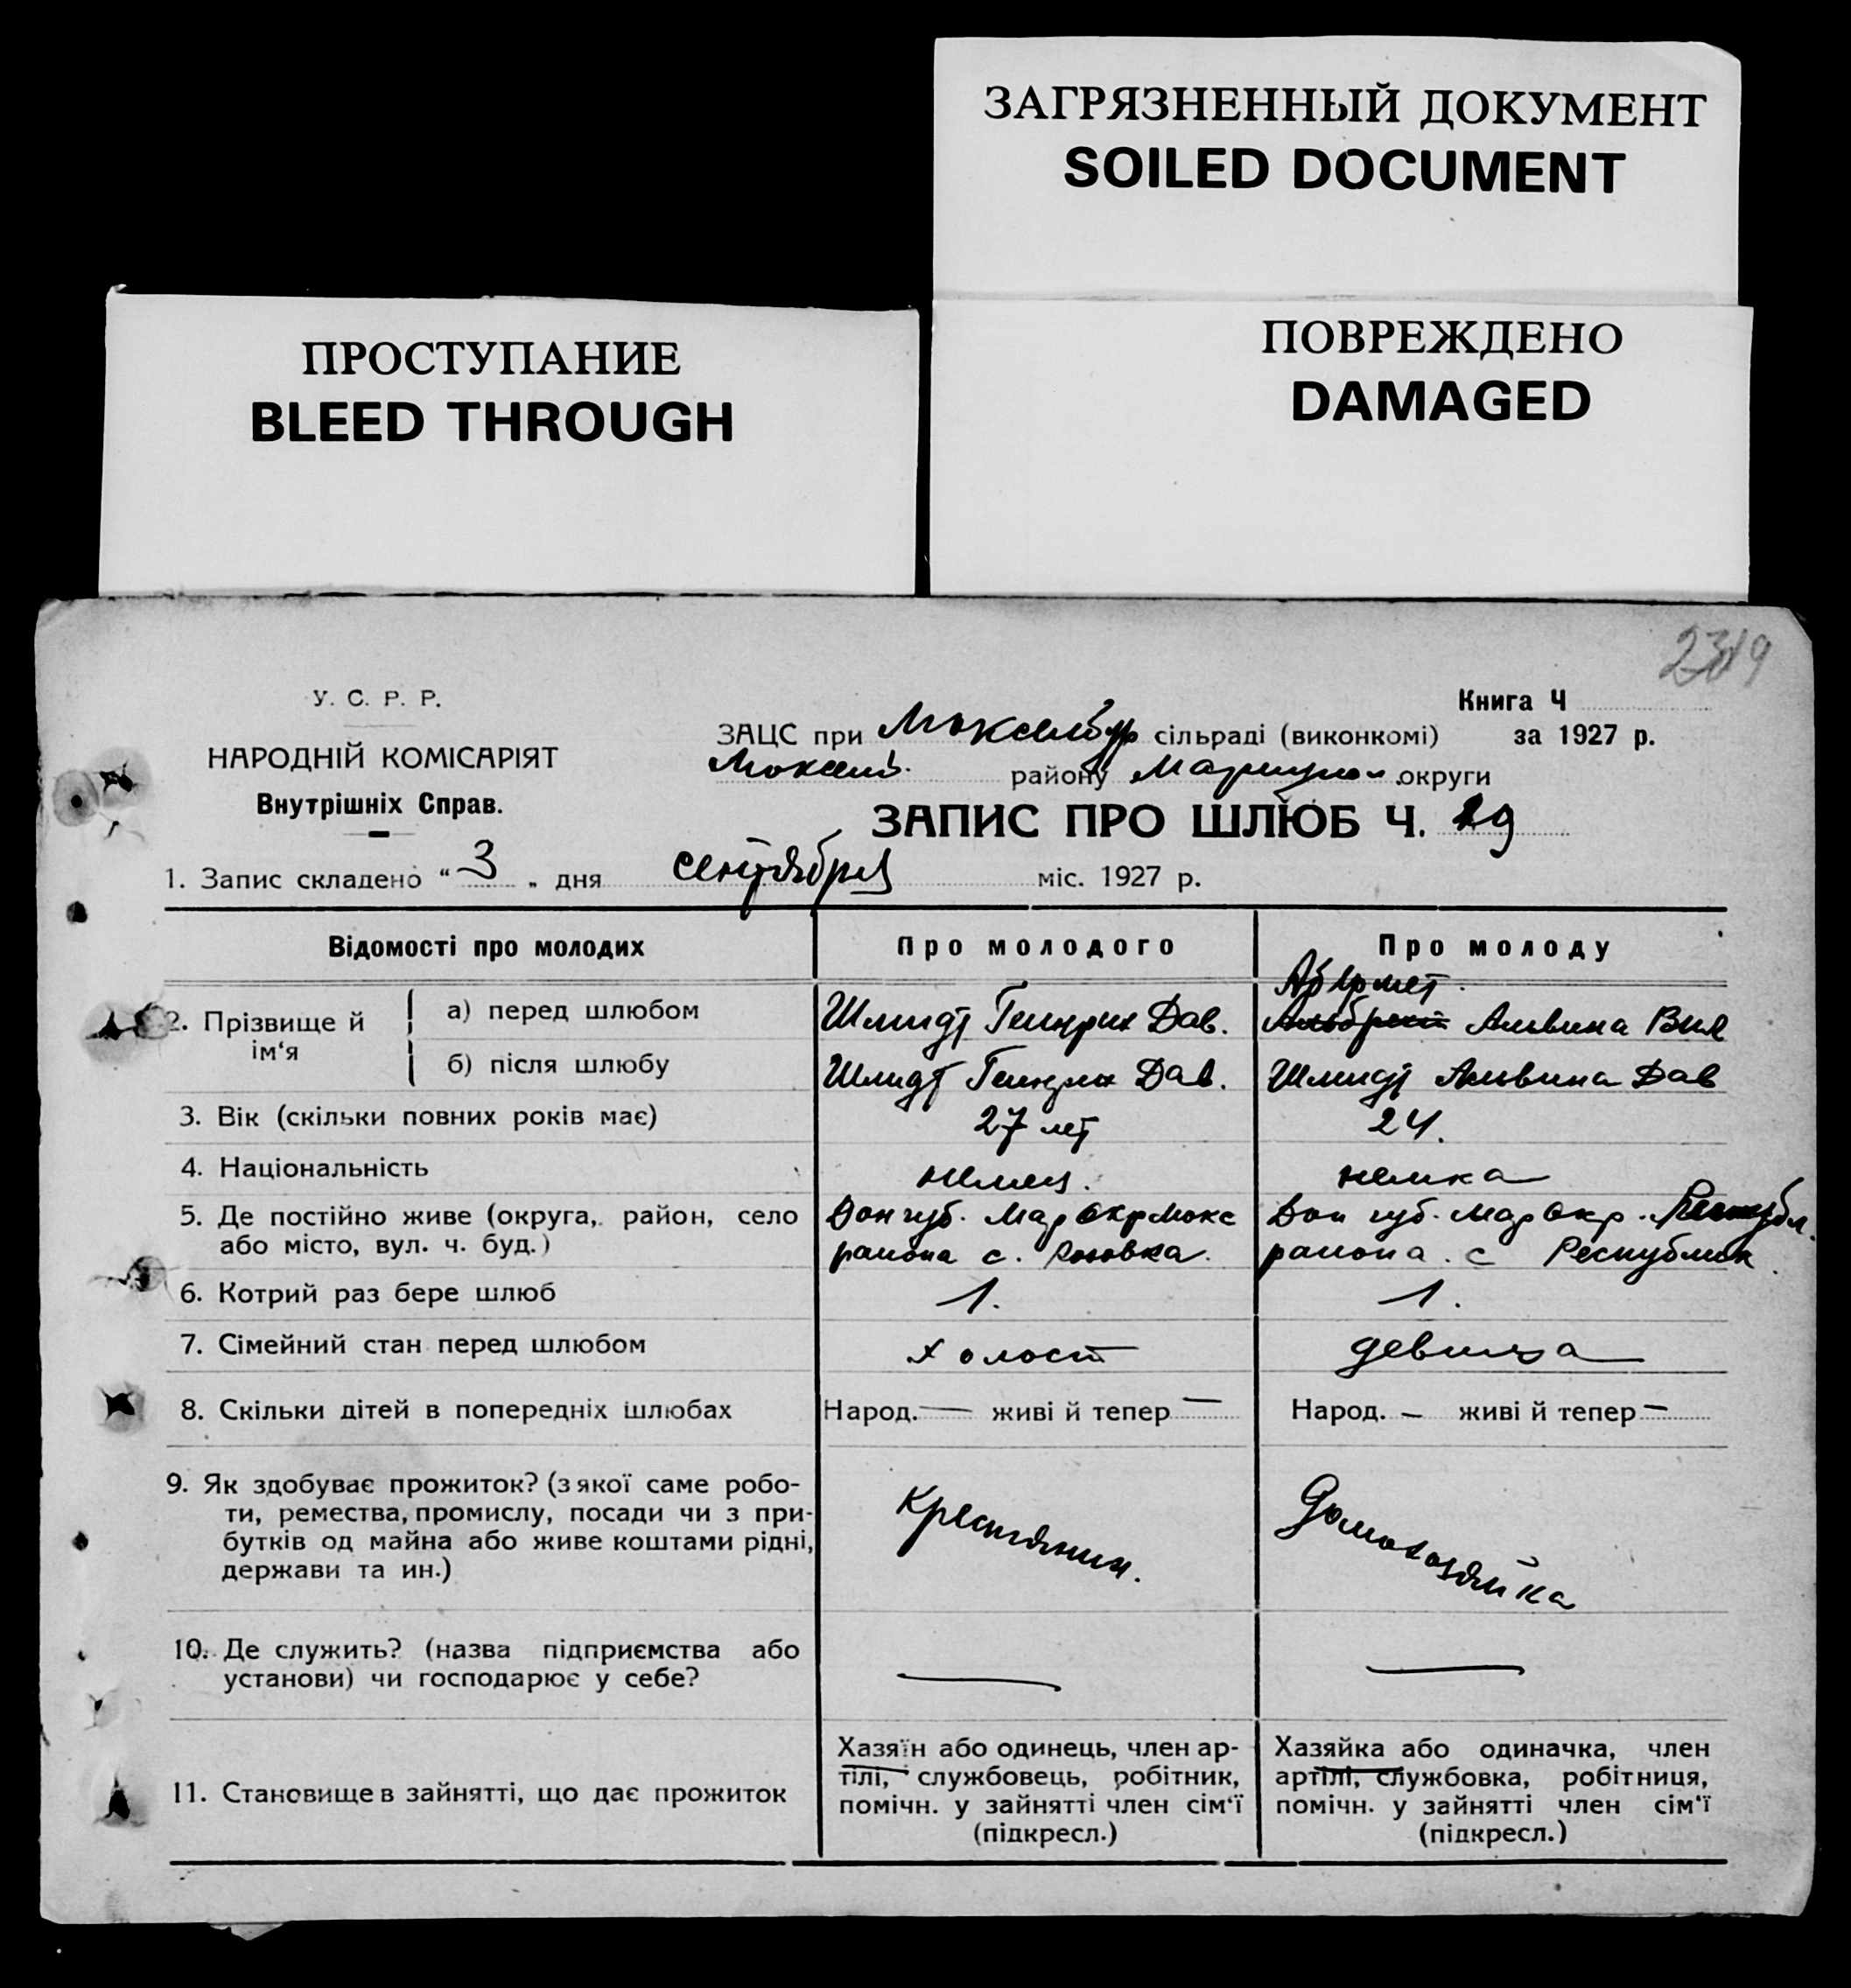 ЗАГРЯЗНЕННЫЙ ДОКУМЕНТ
SOILED DOCUMENT
ПРОСТУПАНИЕ
BLEED THROUGH
ПОВРЕЖДЕНО
DAMAGED
У. С. Р. Р.
НАРОДНІЙ КОМІСАРІЯТ
Внутрішніх Справ.
Книга Ч
ЗАЦС при сільраді (виконкомі) за 1927 р.
району округи
ЗАПИС ПРО ШЛЮБ Ч. 29
1. Запис складено “ 3 „ дня сентября міс. 1927 р.
Відомості про молодих Про молодого Про молоду
2. Прізвище й ім‘я
а) перед шлюбом Шмидт Генрих Дав. Альвина Вил
б) після шлюбу Шмидт Генрих Дав. Шмидт Альвина Дав
3. Вік (скільки повних років має) 27 лет 24.
4. Національність немец. немка
5. Де постійно живе (округа, район, село Дон губ. Мар Окр Мокс Дон губ. Мар Окр.
або місто, вул. ч. буд.) района с. Розовка. района. с Республик
6. Котрий раз бере шлюб 1. 1.
7. Сімейний стан перед шлюбом холост девица
8. Скільки дітей в попередніх шлюбах Народ. — живі й тепер — Народ. — живі й тепер —
9. Як здобуває прожиток? (з якої саме робо-
ти, ремества, промислу, посади чи з при-
бутків од майна або живе коштами рідні,
держави та ин.)
Крестянин.
Домохозяйка
10. Де служить? (назва підприємства або
установи) чи господарює у себе? — —
11. Становище в зайнятті, що дає прожиток
Хазяїн або одинець, член ар-
тілі, службовець, робітник,
помічн. у зайнятті член сім‘ї
(підкресл.)
Хазяйка або одиначка, член
артілі, службовка, робітниця,
помічн. у зайнятті член сім‘ї
(підкресл.)